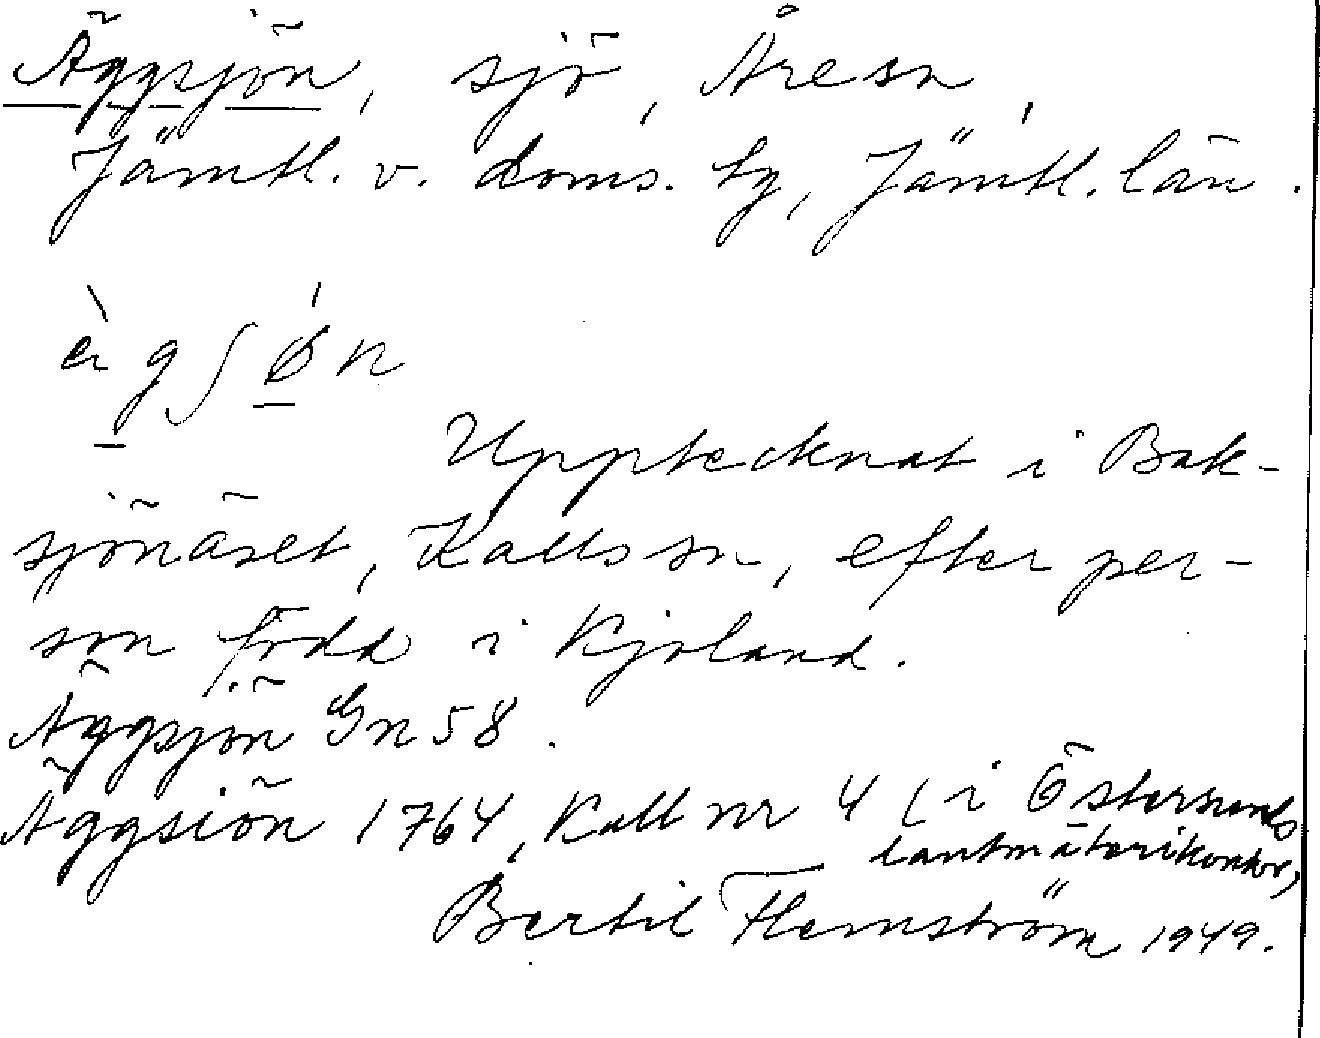 Äggsjön, sjö, Åre sn,
Jämtl. v. doms. tg, Jämtl. län.
Upptecknat i Bak-
sjönäset, Kalls sn, efter per-
son född i Kjoland.
Äggsjön Gn 58.
Äggsiön 1764, Kall nr 4 (i Östersunds
lantmäterikontor)
Bertil Flemström 1949.